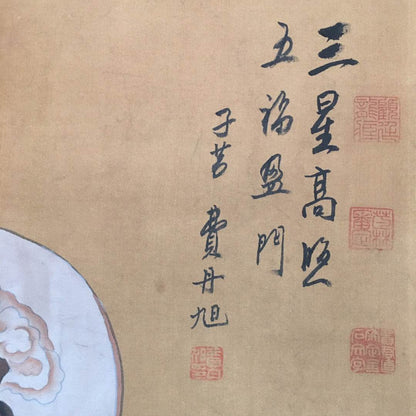 三星高照
五福盈門
子苕 費丹旭